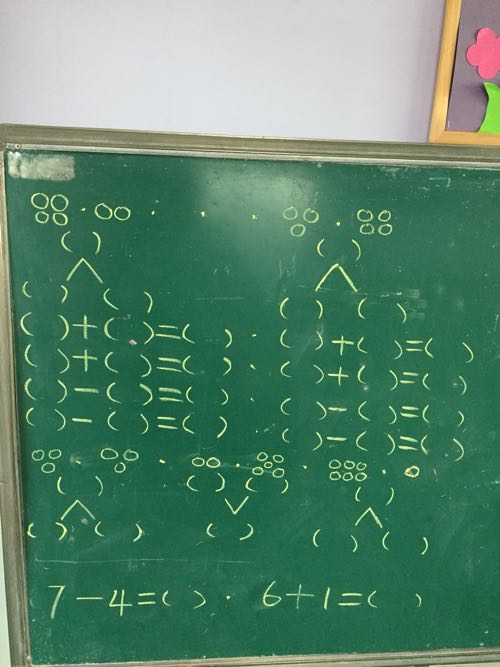 ( ) ( )
( ) ( ) ( ) ( )
( )+( )=( ) ( )+( )=( )
( )+( )=( ) ( )+( )=( )
( )-( )=( ) ( )-( )=( )
( )-( )=( ) ( )-( )=( )
( ) ( ) ( ) ( )
( ) ( ) ( ) ( ) ( )
7-4=( ) 6+1=( )